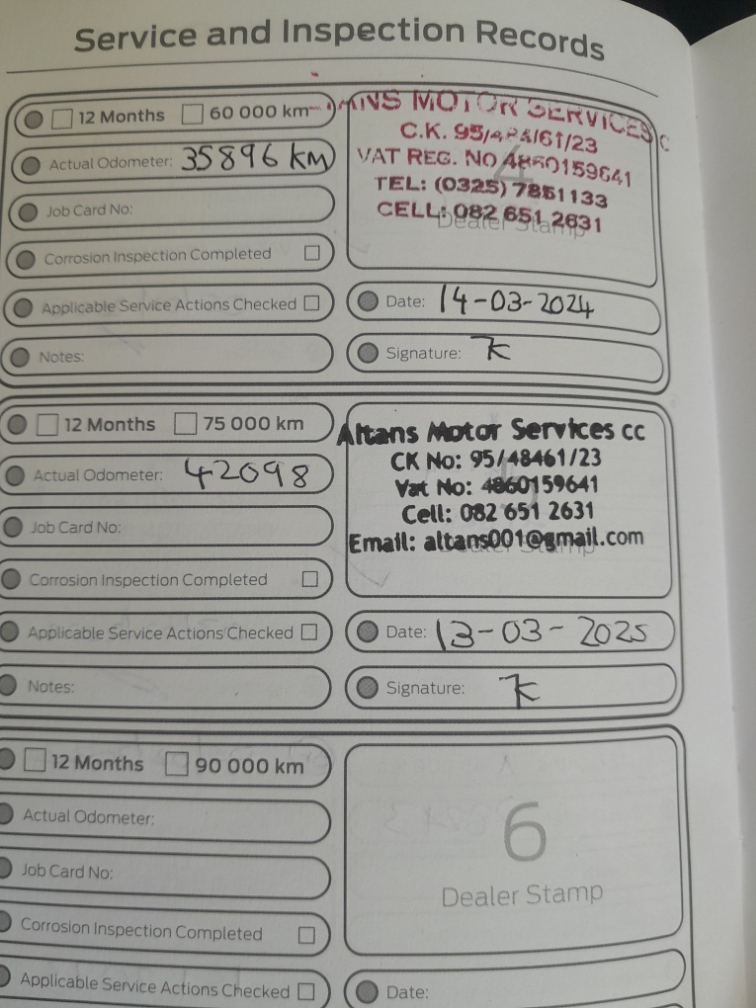 Service and Inspection Records
12 Months 60 000 km
Actual Odometer: 35896 KM
Job Card No:
Corrosion Inspection Completed
Applicable Service Actions Checked
Notes:
ANS MOTOR SERVICES C
C.K. 95/484/61/23
VAT REG. NO 4860159641
TEL: (0325) 7851133
CELL: 082 651 2631
4
Dealer Stamp
Date: 14-03-2024
Signature: K
12 Months 75 000 km
Actual Odometer: 42098
Job Card No:
Corrosion Inspection Completed
Applicable Service Actions Checked
Notes:
Altans Motor Services cc
CK No: 95/48461/23
Vat No: 4860159641
Cell: 082 651 2631
Email: altans001@gmail.com
Date: 13-03-2025
Signature: K
12 Months 90 000 km
Actual Odometer:
Job Card No:
Corrosion Inspection Completed
Applicable Service Actions Checked
6
Dealer Stamp
Date: